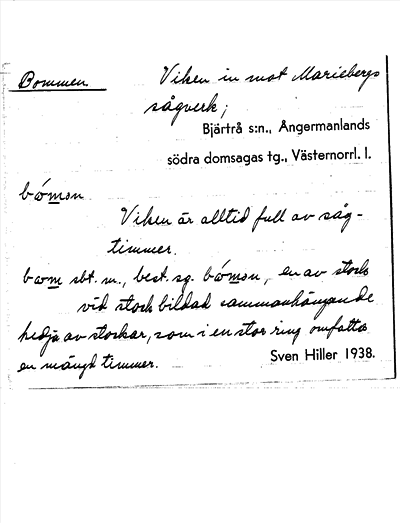 Bommen Viken in mot Mariebergs
sågverk;
Bjärtrå s:n., Ångermanlands
södra domsagas tg., Västernorrl. l.
bómsn
Viken är alltid full av såg-
timmer.
bom sbt. m., best. sg. bómsn, en av stock
vid stock bildad sammanhängande
kedja av stockar, som i en stor ring omfattar
en mängd timmer. Sven Hiller 1938.